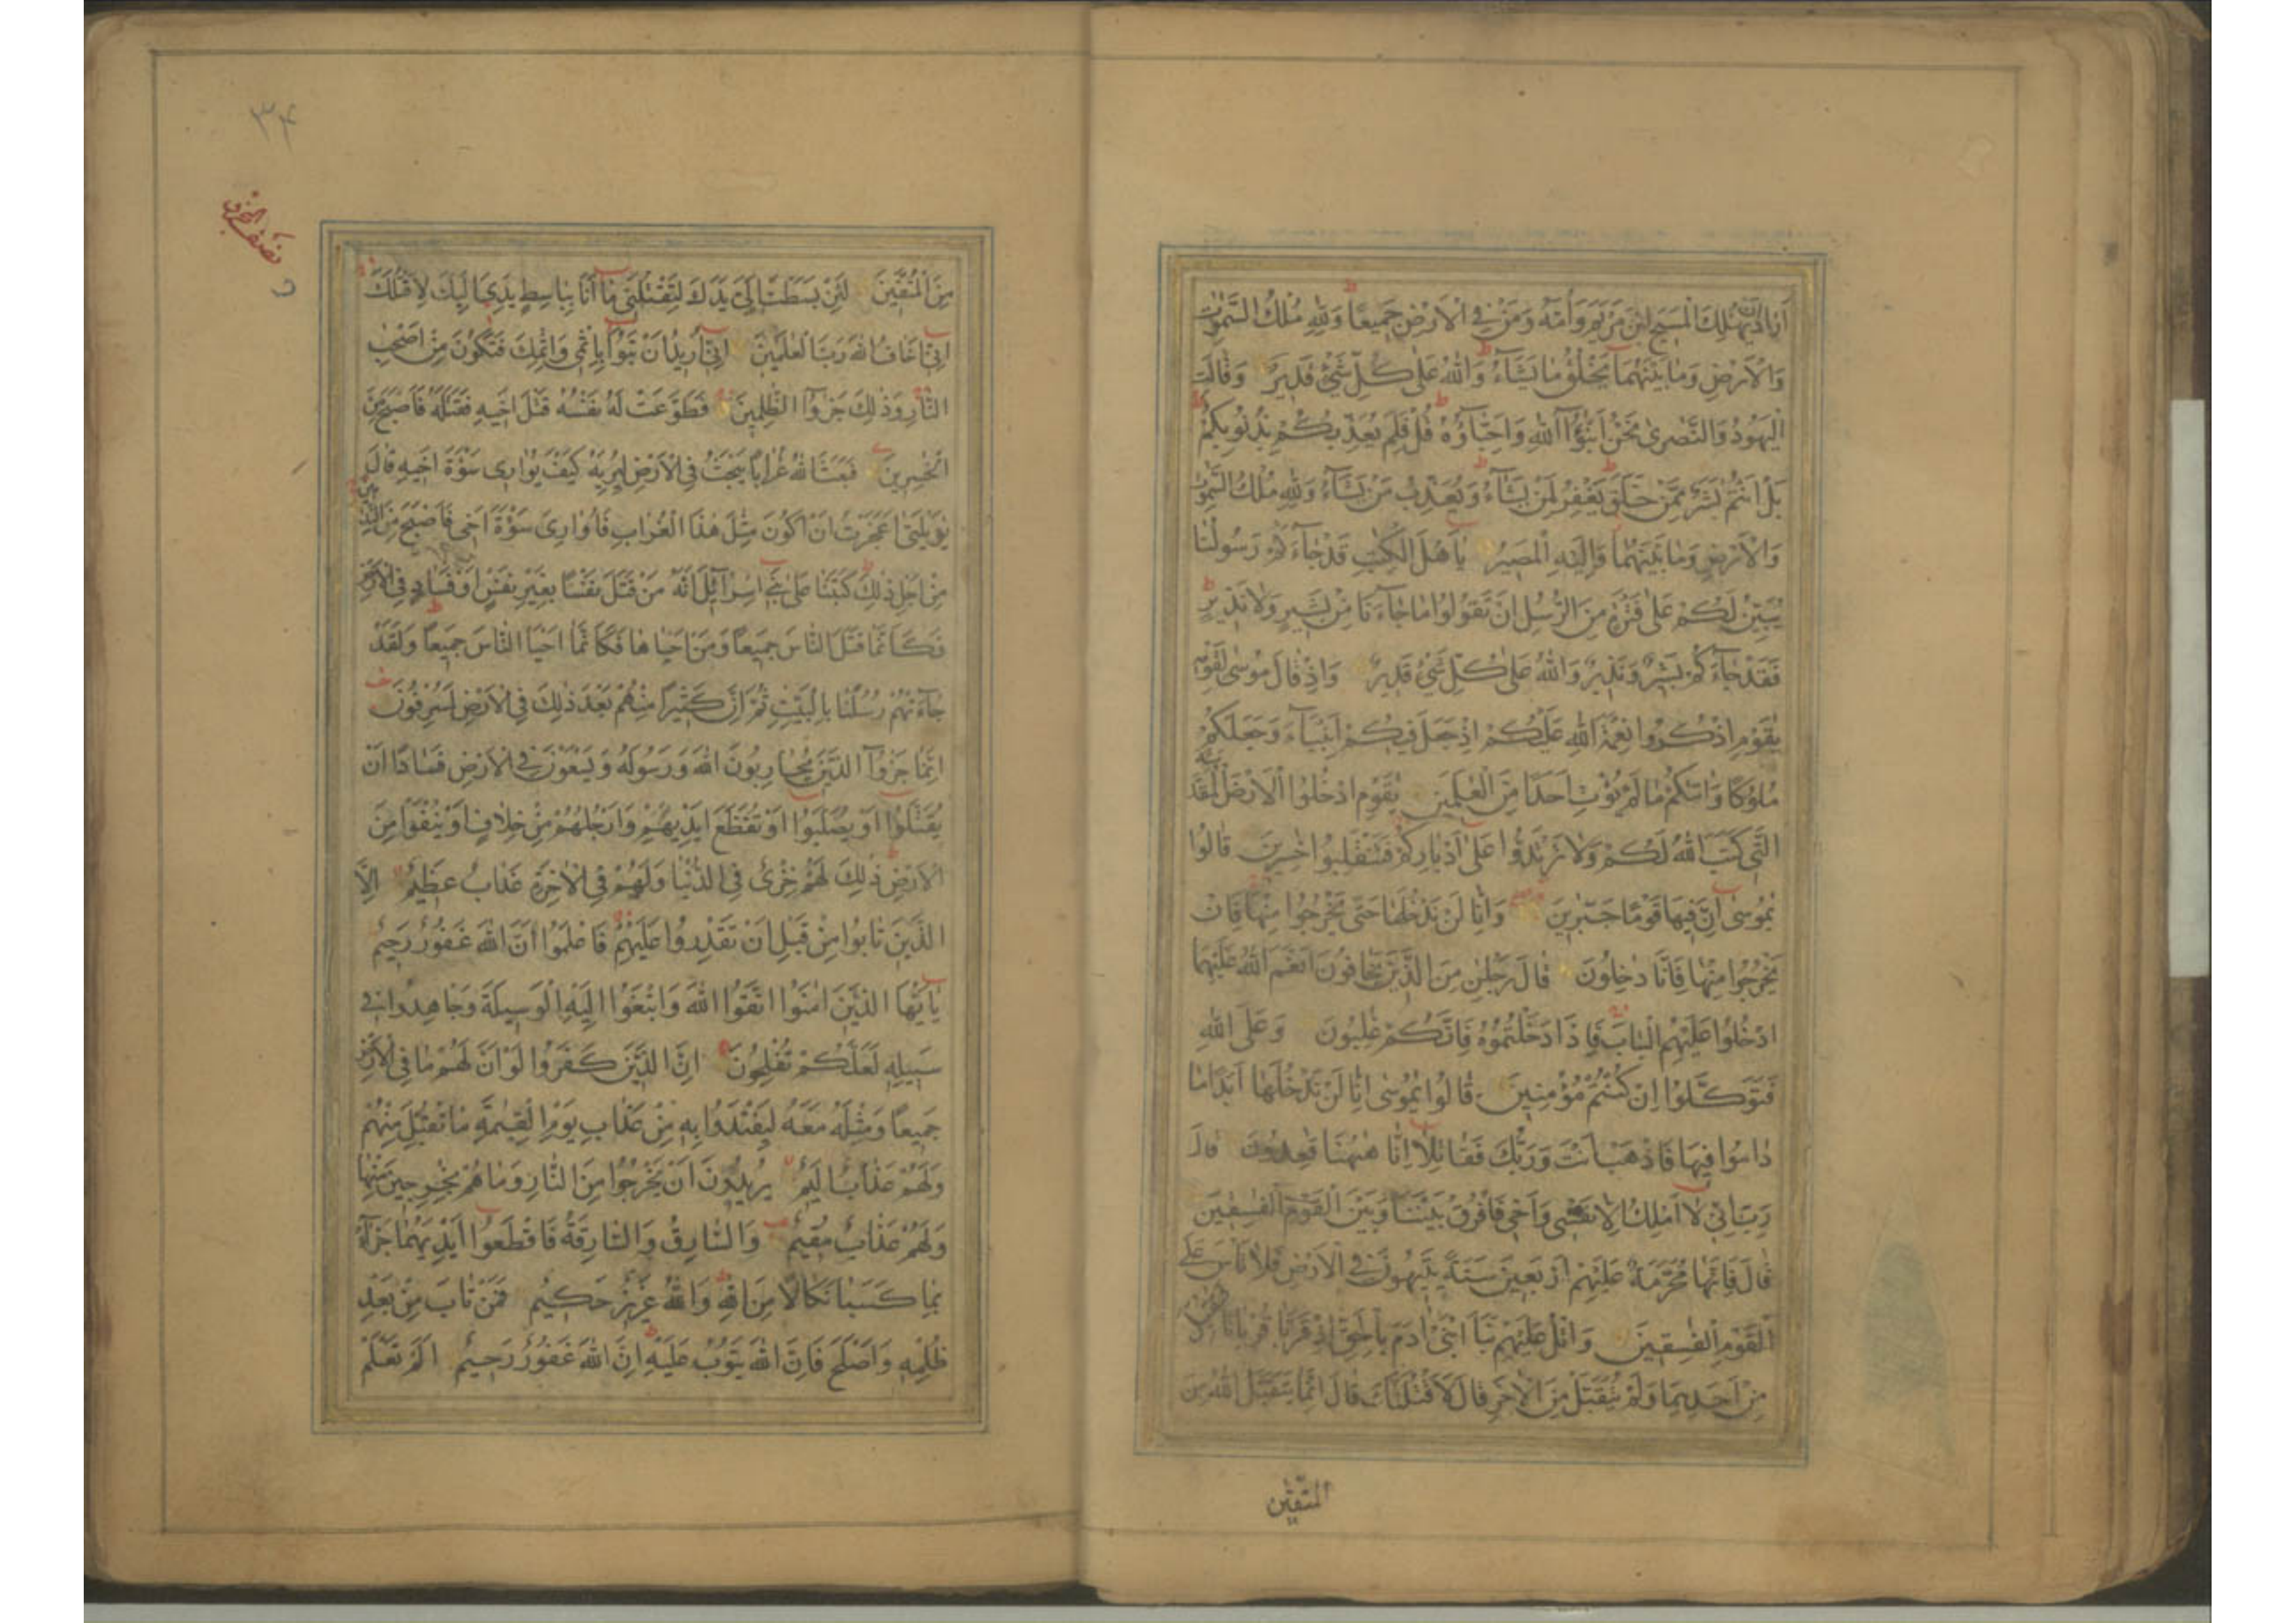 اَرَادَ اَنْ يُهْلِكَ الْمَسِيحَ ابْنَ مَرْيَمَ وَاُمَّهُ وَمَنْ فِي الْاَرْضِ جَمِيعًا وَلِلّٰهِ مُلْكُ السَّمٰوٰتِ
وَالْاَرْضِ وَمَا بَيْنَهُمَا يَخْلُقُ مَا يَشَآءُ وَاللّٰهُ عَلٰى كُلِّ شَيْءٍ قَدِيرٌ وَقَالَتِ
الْيَهُودُ وَالنَّصٰرٰى نَحْنُ اَبْنٰٓؤُا اللّٰهِ وَاَحِبَّآؤُهُ قُلْ فَلِمَ يُعَذِّبُكُمْ بِذُنُوبِكُمْ
بَلْ اَنْتُمْ بَشَرٌ مِمَّنْ خَلَقَ يَغْفِرُ لِمَنْ يَشَآءُ وَيُعَذِّبُ مَنْ يَشَآءُ وَلِلّٰهِ مُلْكُ السَّمٰوٰتِ
وَالْاَرْضِ وَمَا بَيْنَهُمَا وَاِلَيْهِ الْمَصِيرُ يٰٓاَهْلَ الْكِتٰبِ قَدْ جَآءَكُمْ رَسُولُنَا
يُبَيِّنُ لَكُمْ عَلٰى فَتْرَةٍ مِنَ الرُّسُلِ اَنْ تَقُولُوا مَا جَآءَنَا مِنْ بَشِيرٍ وَلَا نَذِيرٍ
فَقَدْ جَآءَكُمْ بَشِيرٌ وَنَذِيرٌ وَاللّٰهُ عَلٰى كُلِّ شَيْءٍ قَدِيرٌ وَاِذْ قَالَ مُوسٰى لِقَوْمِهِ
يٰقَوْمِ اذْكُرُوا نِعْمَةَ اللّٰهِ عَلَيْكُمْ اِذْ جَعَلَ فِيكُمْ اَنْبِيَآءَ وَجَعَلَكُمْ
مُلُوكًا وَاٰتٰىكُمْ مَا لَمْ يُؤْتِ اَحَدًا مِنَ الْعٰلَمِينَ يٰقَوْمِ ادْخُلُوا الْاَرْضَ الْمُقَدَّسَةَ
الَّتِي كَتَبَ اللّٰهُ لَكُمْ وَلَا تَرْتَدُّوا عَلٰى اَدْبَارِكُمْ فَتَنْقَلِبُوا خٰسِرِينَ قَالُوا
يٰمُوسٰى اِنَّ فِيهَا قَوْمًا جَبَّارِينَ وَاِنَّا لَنْ نَدْخُلَهَا حَتّٰى يَخْرُجُوا مِنْهَا فَاِنْ
يَخْرُجُوا مِنْهَا فَاِنَّا دٰخِلُونَ قَالَ رَجُلٰنِ مِنَ الَّذِينَ يَخَافُونَ اَنْعَمَ اللّٰهُ عَلَيْهِمَا
ادْخُلُوا عَلَيْهِمُ الْبَابَ فَاِذَا دَخَلْتُمُوهُ فَاِنَّكُمْ غٰلِبُونَ وَعَلَى اللّٰهِ
فَتَوَكَّلُوا اِنْ كُنْتُمْ مُؤْمِنِينَ قَالُوا يٰمُوسٰى اِنَّا لَنْ نَدْخُلَهَا اَبَدًا مَا
دَامُوا فِيهَا فَاذْهَبْ اَنْتَ وَرَبُّكَ فَقَاتِلَا اِنَّا هٰهُنَا قَاعِدُونَ قَالَ
رَبِّ اِنِّي لَا اَمْلِكُ اِلَّا نَفْسِي وَاَخِي فَافْرُقْ بَيْنَنَا وَبَيْنَ الْقَوْمِ الْفٰسِقِينَ
قَالَ فَاِنَّهَا مُحَرَّمَةٌ عَلَيْهِمْ اَرْبَعِينَ سَنَةً يَتِيهُونَ فِي الْاَرْضِ فَلَا تَاْسَ عَلَى
الْقَوْمِ الْفٰسِقِينَ وَاتْلُ عَلَيْهِمْ نَبَاَ ابْنَيْ اٰدَمَ بِالْحَقِّ اِذْ قَرَّبَا قُرْبَانًا فَتُقُبِّلَ
مِنْ اَحَدِهِمَا وَلَمْ يُتَقَبَّلْ مِنَ الْاٰخَرِ قَالَ لَاَقْتُلَنَّكَ قَالَ اِنَّمَا يَتَقَبَّلُ اللّٰهُ مِنَ
المتّقين
٣٤
نصف الحزب
مِنَ الْمُتَّقِينَ لَئِنْ بَسَطْتَ اِلَيَّ يَدَكَ لِتَقْتُلَنِي مَا اَنَا بِبَاسِطٍ يَدِيَ اِلَيْكَ لِاَقْتُلَكَ
اِنِّي اَخَافُ اللّٰهَ رَبَّ الْعٰلَمِينَ اِنِّي اُرِيدُ اَنْ تَبُوٓاَ بِاِثْمِي وَاِثْمِكَ فَتَكُونَ مِنْ اَصْحٰبِ
النَّارِ وَذٰلِكَ جَزٰٓؤُا الظّٰلِمِينَ فَطَوَّعَتْ لَهُ نَفْسُهُ قَتْلَ اَخِيهِ فَقَتَلَهُ فَاَصْبَحَ مِنَ
الْخٰسِرِينَ فَبَعَثَ اللّٰهُ غُرَابًا يَبْحَثُ فِي الْاَرْضِ لِيُرِيَهُ كَيْفَ يُوَارِي سَوْءَةَ اَخِيهِ قَالَ
يٰوَيْلَتٰى اَعَجَزْتُ اَنْ اَكُونَ مِثْلَ هٰذَا الْغُرَابِ فَاُوَارِيَ سَوْءَةَ اَخِي فَاَصْبَحَ مِنَ النّٰدِمِينَ
مِنْ اَجْلِ ذٰلِكَ كَتَبْنَا عَلٰى بَنِي اِسْرَآئِيلَ اَنَّهُ مَنْ قَتَلَ نَفْسًا بِغَيْرِ نَفْسٍ اَوْ فَسَادٍ فِي الْاَرْضِ
فَكَاَنَّمَا قَتَلَ النَّاسَ جَمِيعًا وَمَنْ اَحْيَاهَا فَكَاَنَّمَا اَحْيَا النَّاسَ جَمِيعًا وَلَقَدْ
جَآءَتْهُمْ رُسُلُنَا بِالْبَيِّنٰتِ ثُمَّ اِنَّ كَثِيرًا مِنْهُمْ بَعْدَ ذٰلِكَ فِي الْاَرْضِ لَمُسْرِفُونَ
اِنَّمَا جَزٰٓؤُا الَّذِينَ يُحَارِبُونَ اللّٰهَ وَرَسُولَهُ وَيَسْعَوْنَ فِي الْاَرْضِ فَسَادًا اَنْ
يُقَتَّلُوا اَوْ يُصَلَّبُوا اَوْ تُقَطَّعَ اَيْدِيهِمْ وَاَرْجُلُهُمْ مِنْ خِلَافٍ اَوْ يُنْفَوْا مِنَ
الْاَرْضِ ذٰلِكَ لَهُمْ خِزْيٌ فِي الدُّنْيَا وَلَهُمْ فِي الْاٰخِرَةِ عَذَابٌ عَظِيمٌ اِلَّا
الَّذِينَ تَابُوا مِنْ قَبْلِ اَنْ تَقْدِرُوا عَلَيْهِمْ فَاعْلَمُوا اَنَّ اللّٰهَ غَفُورٌ رَحِيمٌ
يٰٓاَيُّهَا الَّذِينَ اٰمَنُوا اتَّقُوا اللّٰهَ وَابْتَغُوا اِلَيْهِ الْوَسِيلَةَ وَجَاهِدُوا فِي
سَبِيلِهِ لَعَلَّكُمْ تُفْلِحُونَ اِنَّ الَّذِينَ كَفَرُوا لَوْ اَنَّ لَهُمْ مَا فِي الْاَرْضِ
جَمِيعًا وَمِثْلَهُ مَعَهُ لِيَفْتَدُوا بِهِ مِنْ عَذَابِ يَوْمِ الْقِيٰمَةِ مَا تُقُبِّلَ مِنْهُمْ
وَلَهُمْ عَذَابٌ اَلِيمٌ يُرِيدُونَ اَنْ يَخْرُجُوا مِنَ النَّارِ وَمَا هُمْ بِخٰرِجِينَ مِنْهَا
وَلَهُمْ عَذَابٌ مُقِيمٌ وَالسَّارِقُ وَالسَّارِقَةُ فَاقْطَعُوا اَيْدِيَهُمَا جَزَآءً
بِمَا كَسَبَا نَكَالًا مِنَ اللّٰهِ وَاللّٰهُ عَزِيزٌ حَكِيمٌ فَمَنْ تَابَ مِنْ بَعْدِ
ظُلْمِهِ وَاَصْلَحَ فَاِنَّ اللّٰهَ يَتُوبُ عَلَيْهِ اِنَّ اللّٰهَ غَفُورٌ رَحِيمٌ اَلَمْ تَعْلَمْ